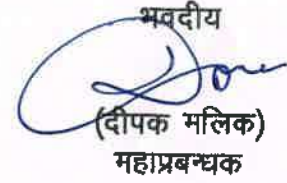 भवदीय
(दीपक मलिक)
महाप्रबन्धक